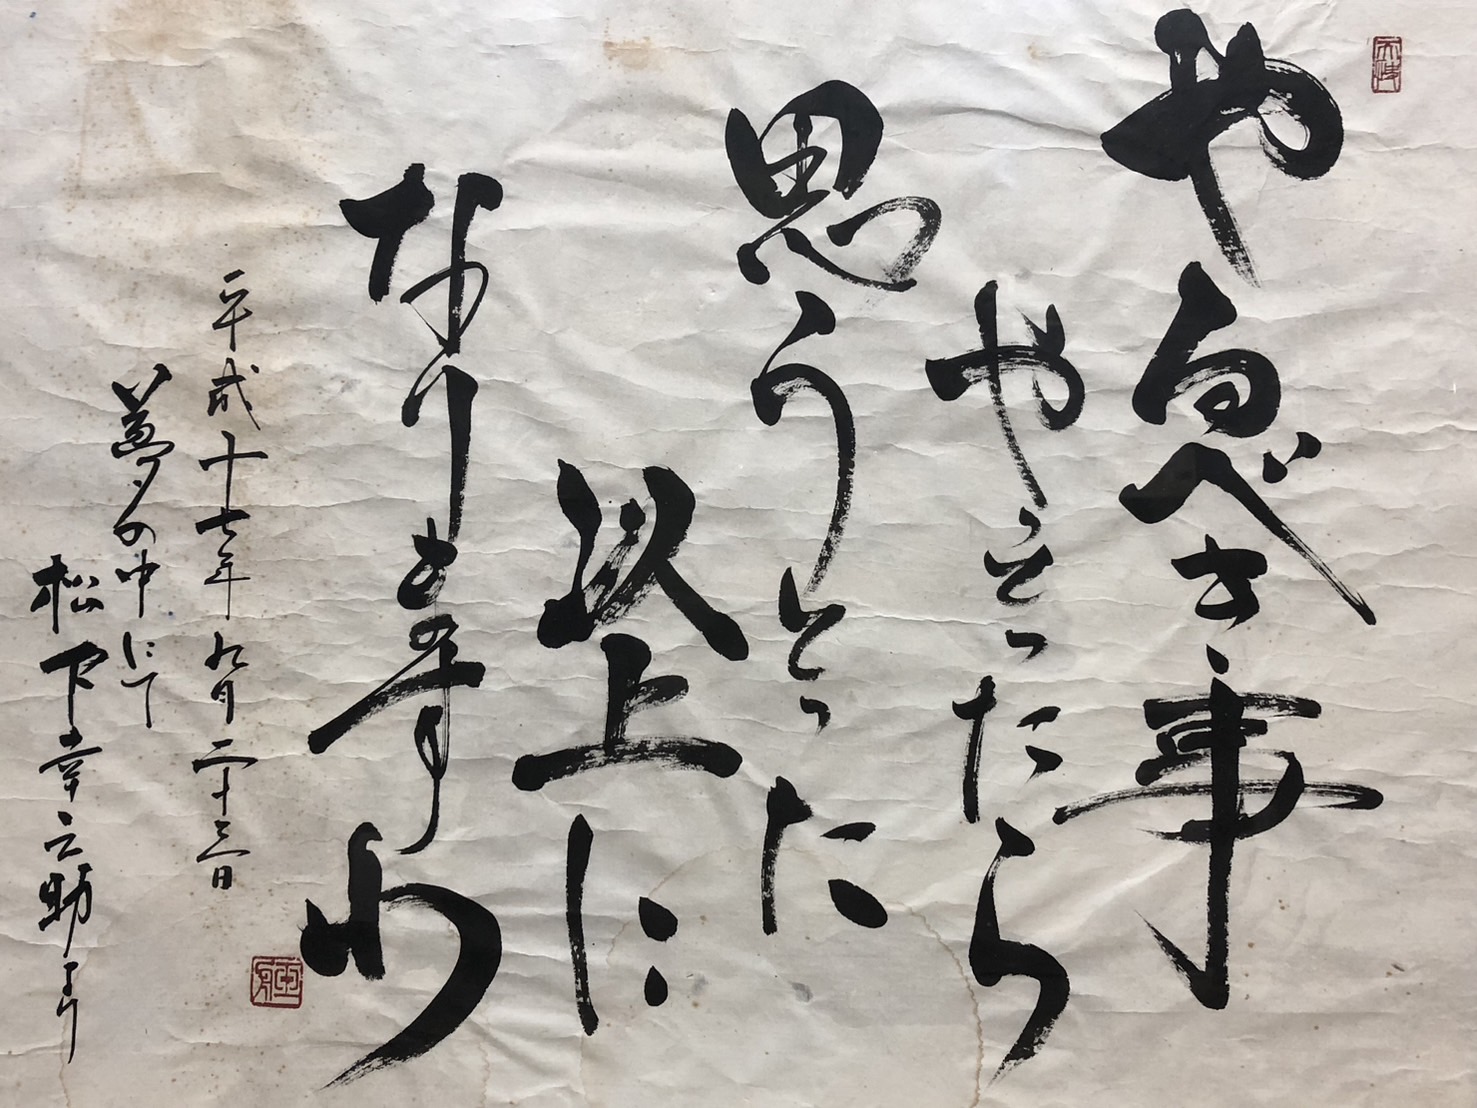 やるべき事
やったら
思うとった
以上に
なりますわ
平成十七年九月二十三日
夢の中にて
松下幸之助より